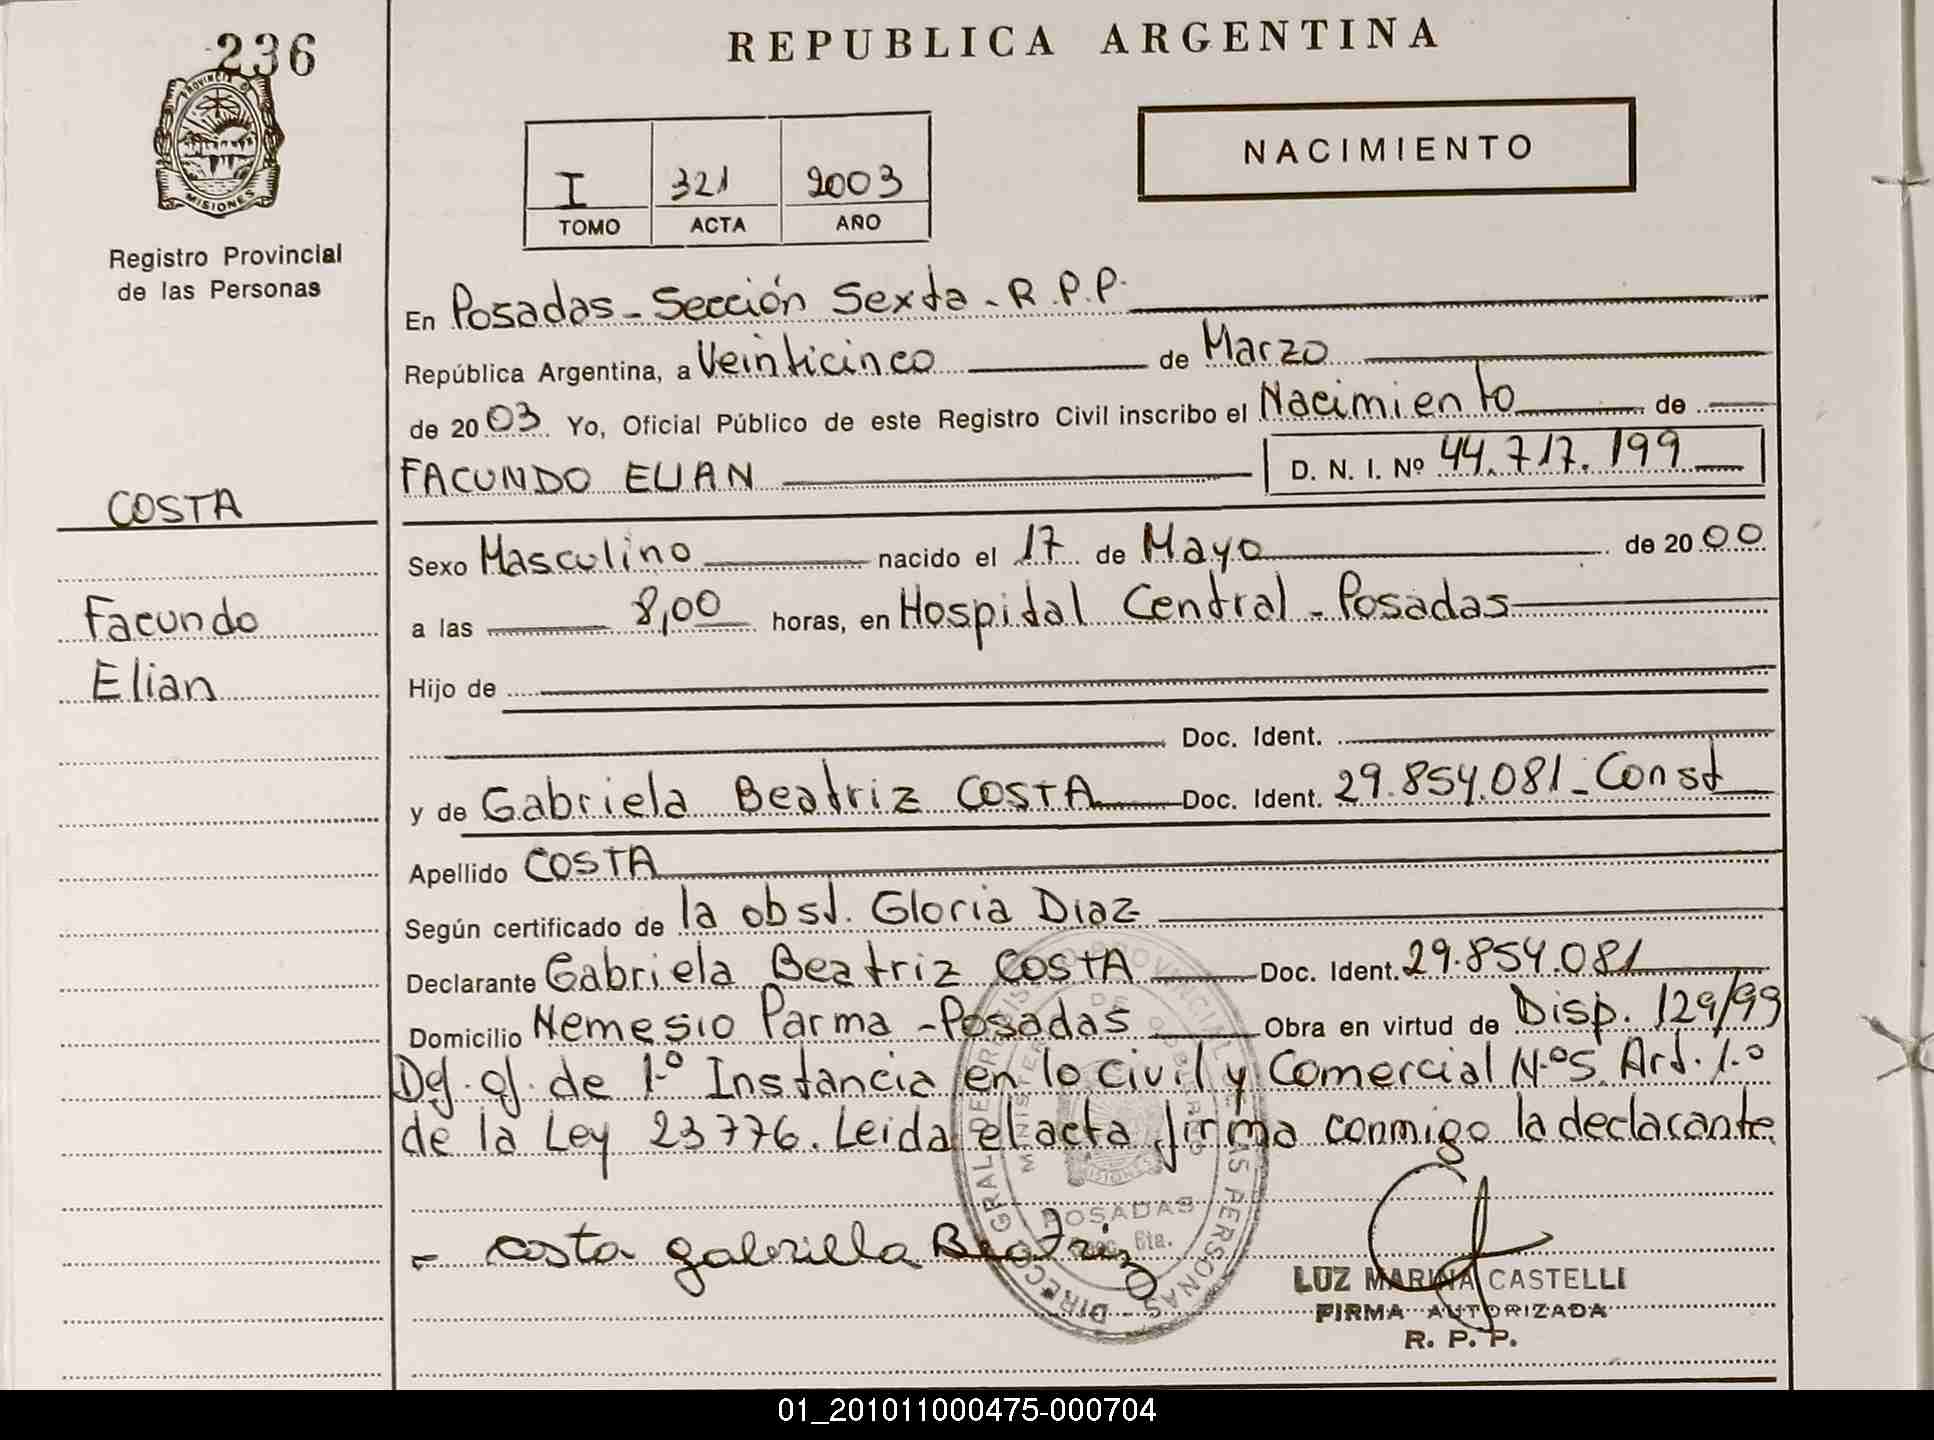 236
PROVINCIA DE
MISIONES
Registro Provincial
de las Personas
COSTA
Facundo
Elian
REPUBLICA ARGENTINA
I 321 2003
TOMO ACTA AÑO
NACIMIENTO
En Posadas - Sección Sexta - R.P.P.
República Argentina, a Veinticinco de Marzo
de 2003 Yo, Oficial Público de este Registro Civil inscribo el Nacimiento de
FACUNDO ELIAN D. N. I. Nº 44.717.199
Sexo Masculino nacido el 17 de Mayo de 2000
a las 8,00 horas, en Hospital Central - Posadas
Hijo de
Doc. Ident.
y de Gabriela Beatriz COSTA Doc. Ident. 29.854.081 - Const
Apellido COSTA
Según certificado de la obst. Gloria Diaz
Declarante Gabriela Beatriz COSTA Doc. Ident. 29.854.081
Domicilio Nemesio Parma - Posadas Obra en virtud de Disp. 129/99
Def. of. de 1.º Instancia en lo civil y Comercial N.º5. Art. 1.º
de la Ley 23776. Leida el acta firma conmigo la declarante.
POSADAS
Secc. 6ta.
- costa gabriella Beatriz
LUZ MARINA CASTELLI
FIRMA AUTORIZADA
R. P. P.
01_201011000475-000704